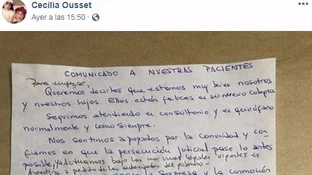 Cecilia Ousset
Ayer a las 15:50
COMUNICADO A NUESTRAS PACIENTES
Para empezar,
Queremos decirles que estamos muy bien nosotros
y nuestros hijos. Ellos están felices en su nuevo colegio.
Seguimos atendiendo en consultorio y en quirófano
normalmente y como siempre.
Nos sentimos apoyados por la comunidad y con-
fiamos en que la persecución judicial pase lo antes
posible, ya que actuamos bajo las normas legales vigentes en
a pedido de las autoridades del
sorpresa y la